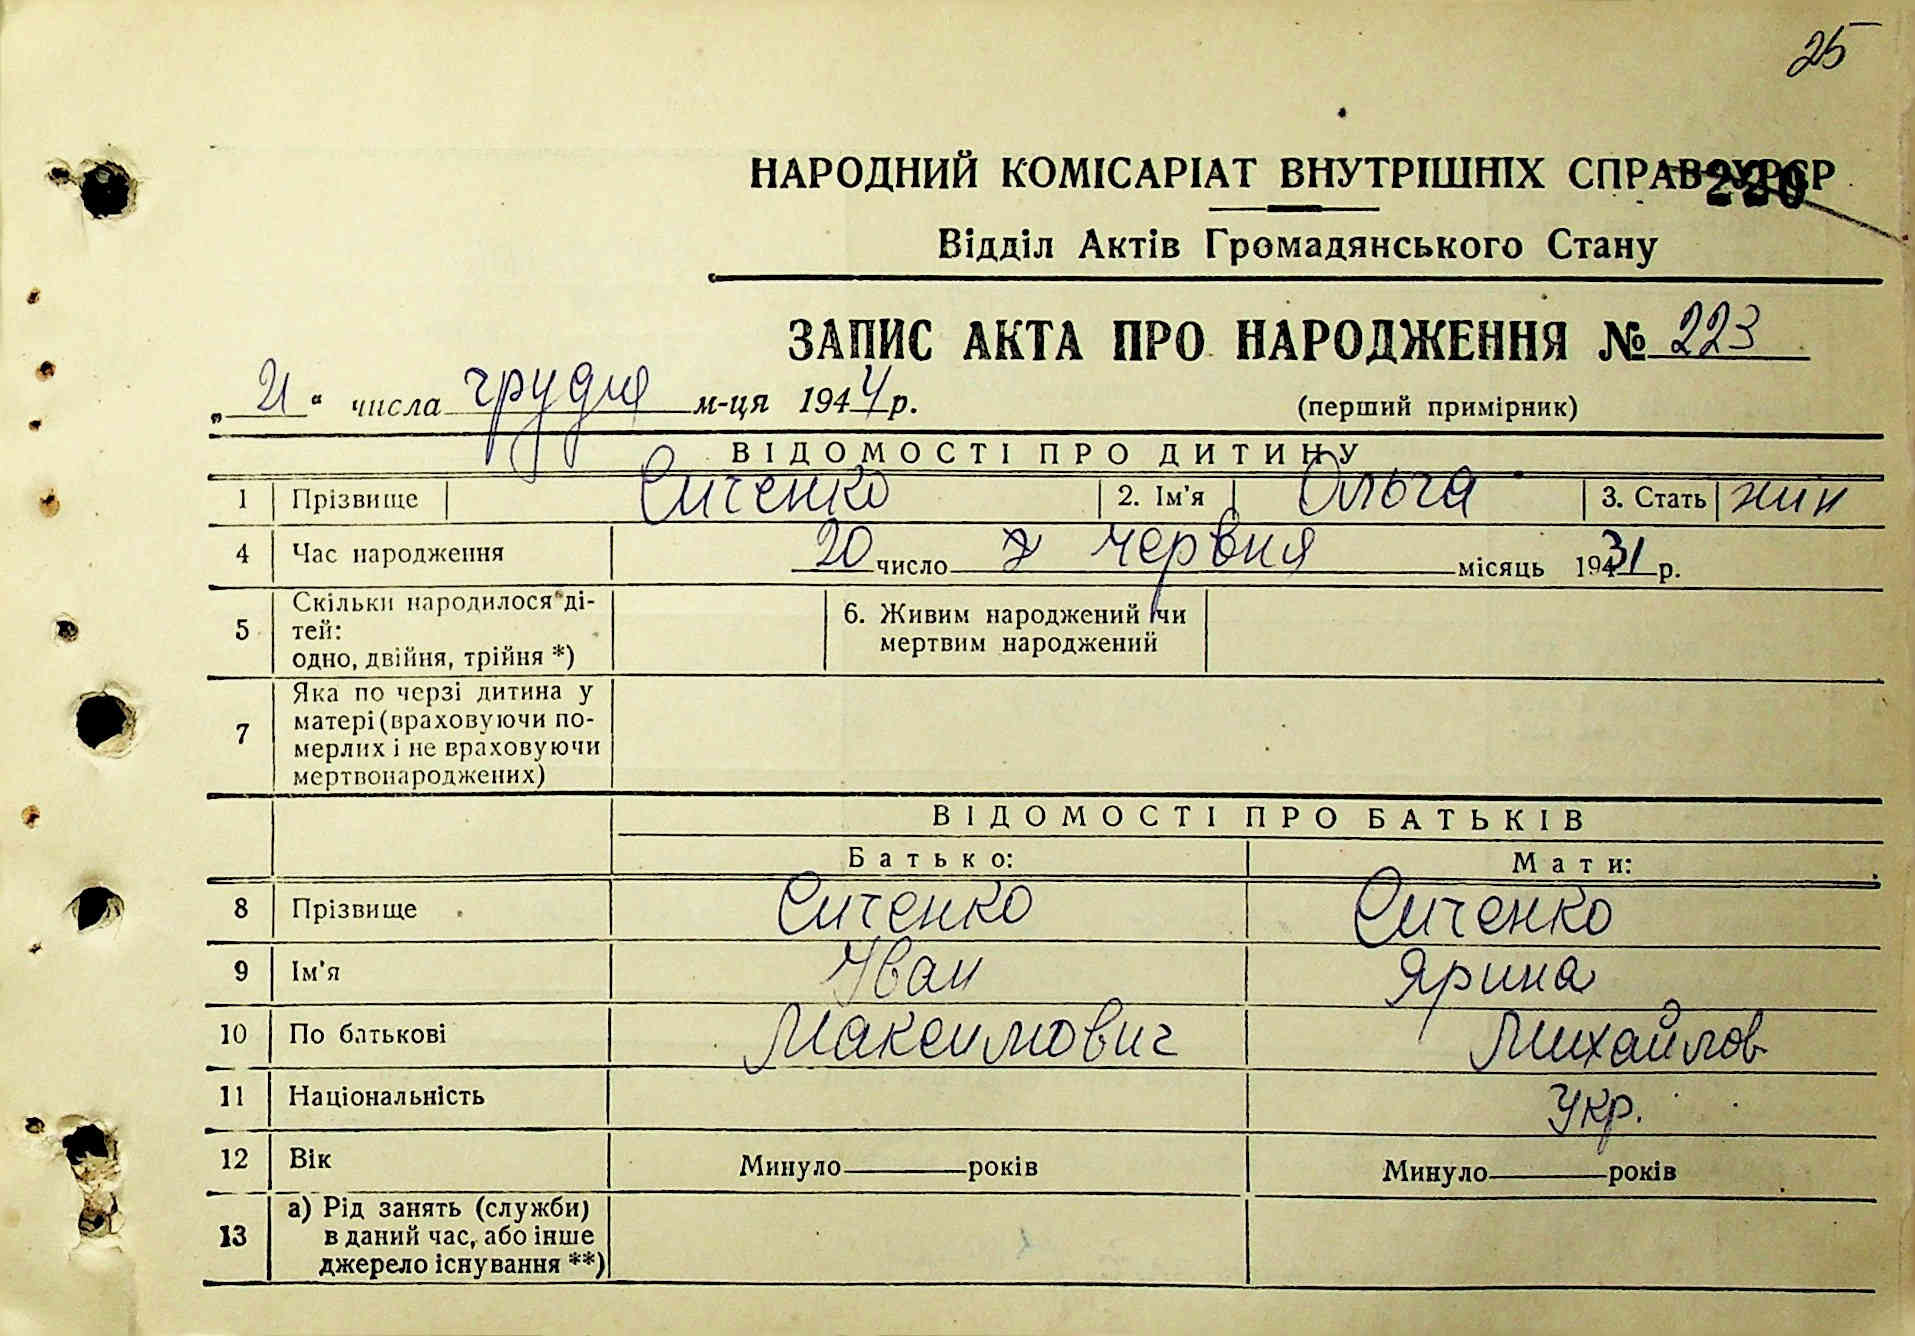 25
НАРОДНИЙ КОМІСАРІАТ ВНУТРІШНІХ СПРАВ УРСР
220
Відділ Актів Громадянського Стану
ЗАПИС АКТА ПРО НАРОДЖЕННЯ № 223
„21“ числа грудня м-ця 1944 р. (перший примірник)
ВІДОМОСТІ ПРО ДИТИНУ
1 Прізвище Ситенко 2. Ім'я Ольга 3. Стать жин
4 Час народження 20 число червня місяць 1931 р.
5 Скільки народилося ді-
тей:
одно, двійня, трійня *)
6. Живим народжений чи
мертвим народжений
7 Яка по черзі дитина у
матері (враховуючи по-
мерлих і не враховуючи
мертвонароджених)
ВІДОМОСТІ ПРО БАТЬКІВ
Батько: Мати:
8 Прізвище Ситенко Ситенко
9 Ім'я Іван Ярина
10 По батькові Максимович Михайлов
11 Національність Укр.
12 Вік Минуло років Минуло років
13 а) Рід занять (служби)
в даний час, або інше
джерело існування **)